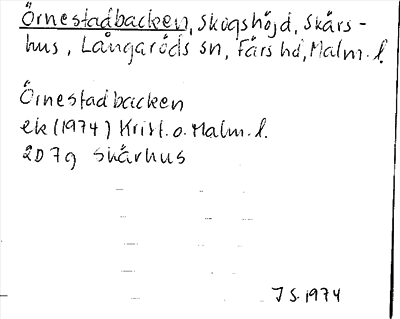 Örnestadbacken, skogshöjd, Skårs-
hus, Långaröds sn, Färs hd, Malm. l.
Örnestadbacken
ek (1974) Krist. o. Malm. l.
2D7g Skårhus
J S. 1974